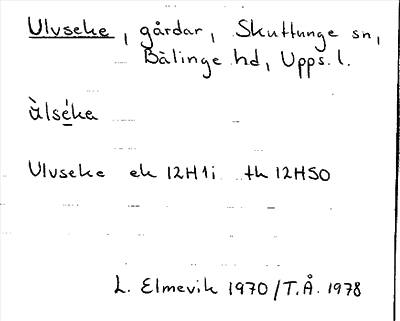 Ulvseke, gårdar, Skuttunge sn,
Bälinge hd, Upps. l.
ùlsé̱ka
Ulvseke ek 12H1i th 12H50
L. Elmevik 1970/T.Å. 1978